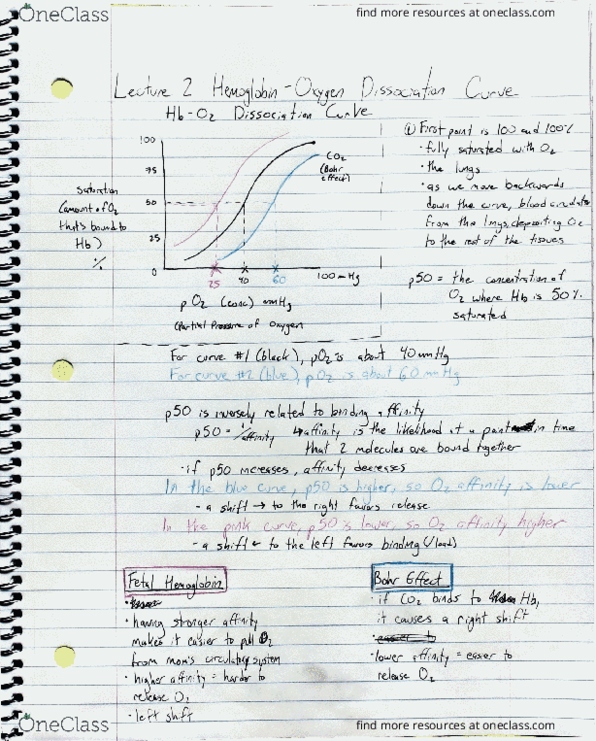 OneClass
find more resources at oneclass.com
Lecture 2 Hemoglobin-Oxygen Dissociation Curve
Hb-O2 Dissociation Curve
100
75
50
25
0
Saturation
(amount of O2
that's bound to
Hb)
%
CO2
(Bohr
effect)
25
40
60
100 mmHg
pO2 (conc) mmHg
(Partial Pressure of Oxygen)
① First point is 100 and 100%
· fully saturated with O2
· the lungs
· as we move backwards
down the curve, blood circulates
from the lungs, depositing O2
to the rest of the tissues
p50 = the concentration of
O2 where Hb is 50%
saturated
For curve #1 (black), pO2 is about 40 mmHg
For curve #2 (blue), pO2 is about 60 mmHg
p50 is inversely related to binding affinity
p50 = 1/affinity ↳ affinity is the likelihood at a point in time
that 2 molecules are bound together
· if p50 increases, affinity decreases
In the blue curve, p50 is higher, so O2 affinity is lower
- a shift → to the right favors release
In the pink curve, p50 is lower, so O2 affinity higher
- a shift ← to the left favors binding (/load)
Fetal Hemoglobin
· having stronger affinity
makes it easier to pull O2
from mom's circulatory system
· higher affinity = harder to
release O2
· left shift
Bohr Effect
· if CO2 binds to Hb,
it causes a right shift
· easier to
· lower affinity = easier to
release O2
OneClass
find more resources at oneclass.com